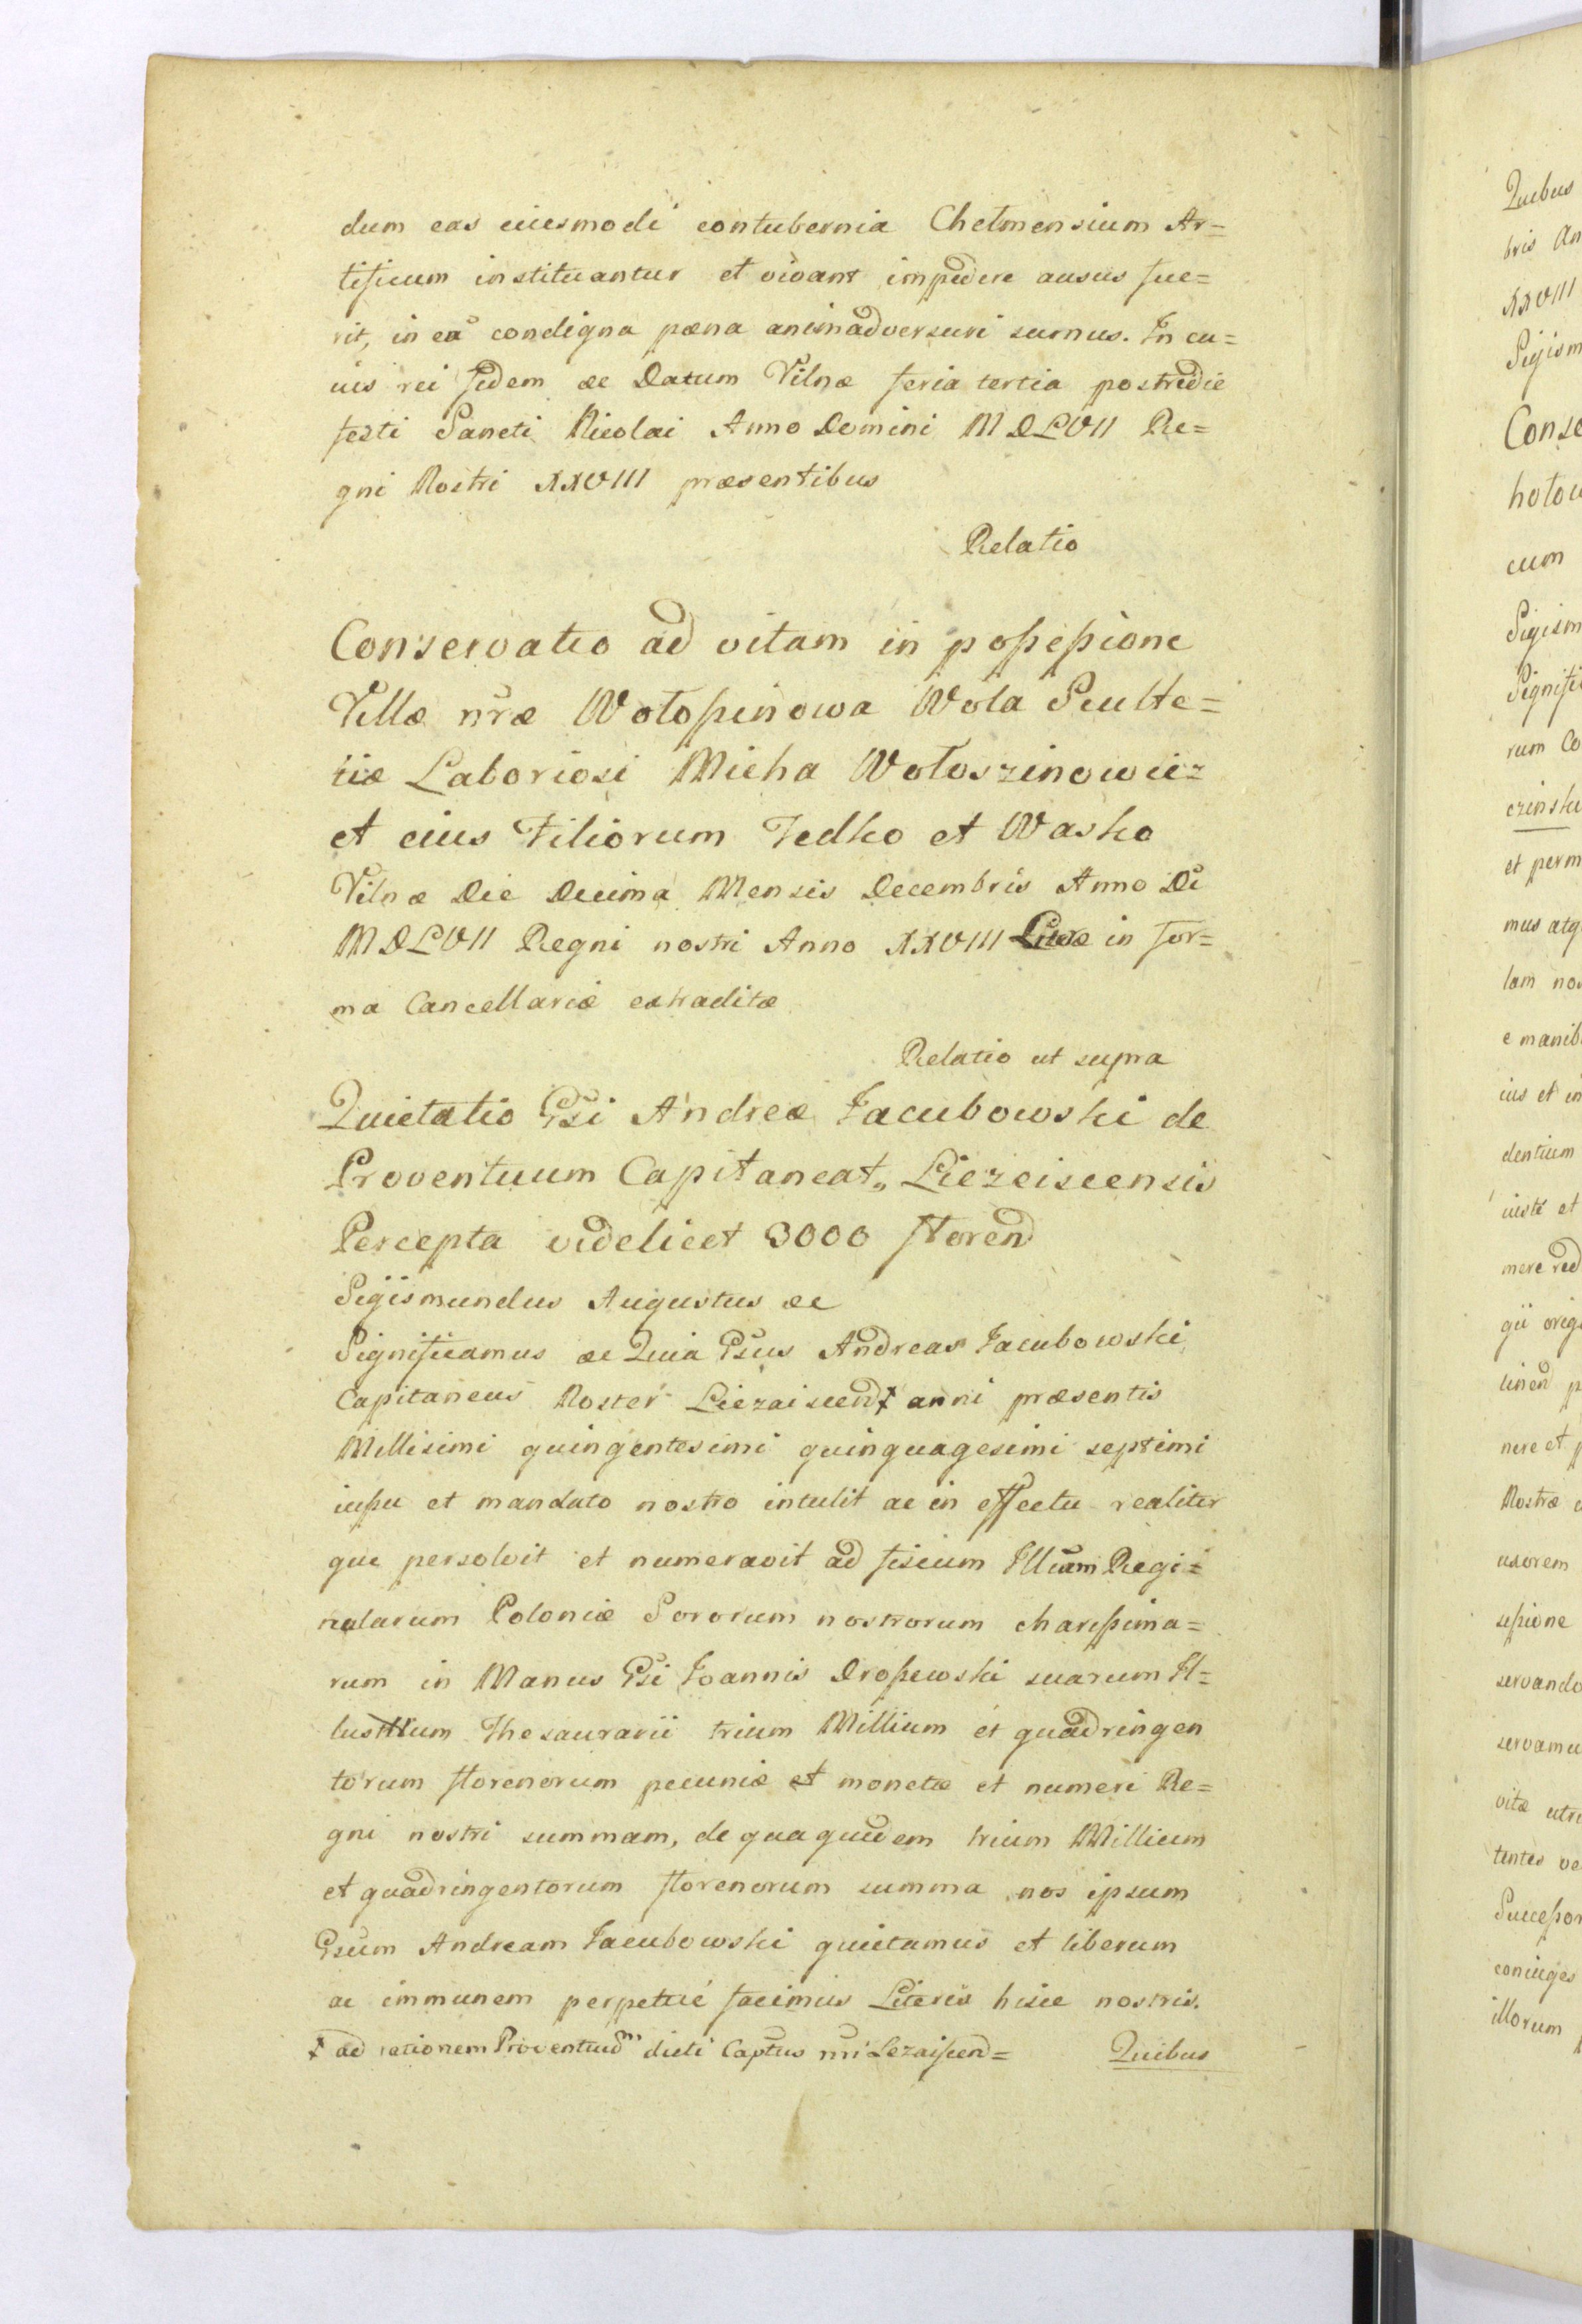 dum eas eiusmodi contubernia Chelmensium Ar=
tificum instituantur et vivant impedire ausus fue=
rit, in eũ condigna pæna animadversuri sumus. In cu=
ius rei fidem &c Datum Vilnæ feria tertia postridie
festi Sancti Nicolai Anno Domini MDLVII Re=
gni Nostri XXVIII præsentibus
Relatio
Conservatio ad vitam in possessione
Villæ nræ Wołossinowa Wola Sculte=
tiæ Laboriosi Micha Wołoszinowicz
et eius Filiorum Fedko et Wasko
Vilnæ Die Decima Mensis Decembris Anno Di
MDLVII Regni nostri Anno XXVIII Literæ in for=
ma Cancellariæ extraditæ
Relatio ut supra
Quietatio Gsi Andreæ Jacubowski de
Proventuum Capitaneat„ Liezeiscensis
Percepta videlicet 3000 floren
Sigismundus Augustus &c
Significamus &c Quia Gsus Andreas Jacubowski
Capitaneus Noster Liezaiscen ‡ anni præsentis
Millesimi quingentesimi quinquagesimi septimi
iussu et mandato nostro intulit ac in effectu realiter
que persolvit et numeravit ad fiscum Illium Regi=
nularum Poloniæ Sororum nostrorum charissima=
rum in Manus Gsi Joannis Drossewski suarum Il=
lustrium Thesaurarii trium Millium et quadringen
torum florenorum pecuniæ et monetæ et numeri Re=
gni nostri summam, de qua quidem trium Millium
et quadringentorum florenorum summa nos ipsum
Gsum Andream Jacubowski quietamus et liberum
ac immunem perpetuè facimus Literis hisce nostris.
‡ ad rationem Proventuum dicti Captus nri Lezaiscen=
Quibus
Quibus
bris An
XXVIII
Sigism
Conse
hotow
cum
Sigism
Signifi
rum Co
czinski
et perm
mus atq
lam nos
e manib
ius et in
dentium
iuste et
mere red
gii orig
linen p
nere et p
Nostræ
uxorem
sessione
servando
servamu
vitæ utri
tentes ve
Successor
coniuges
illorum